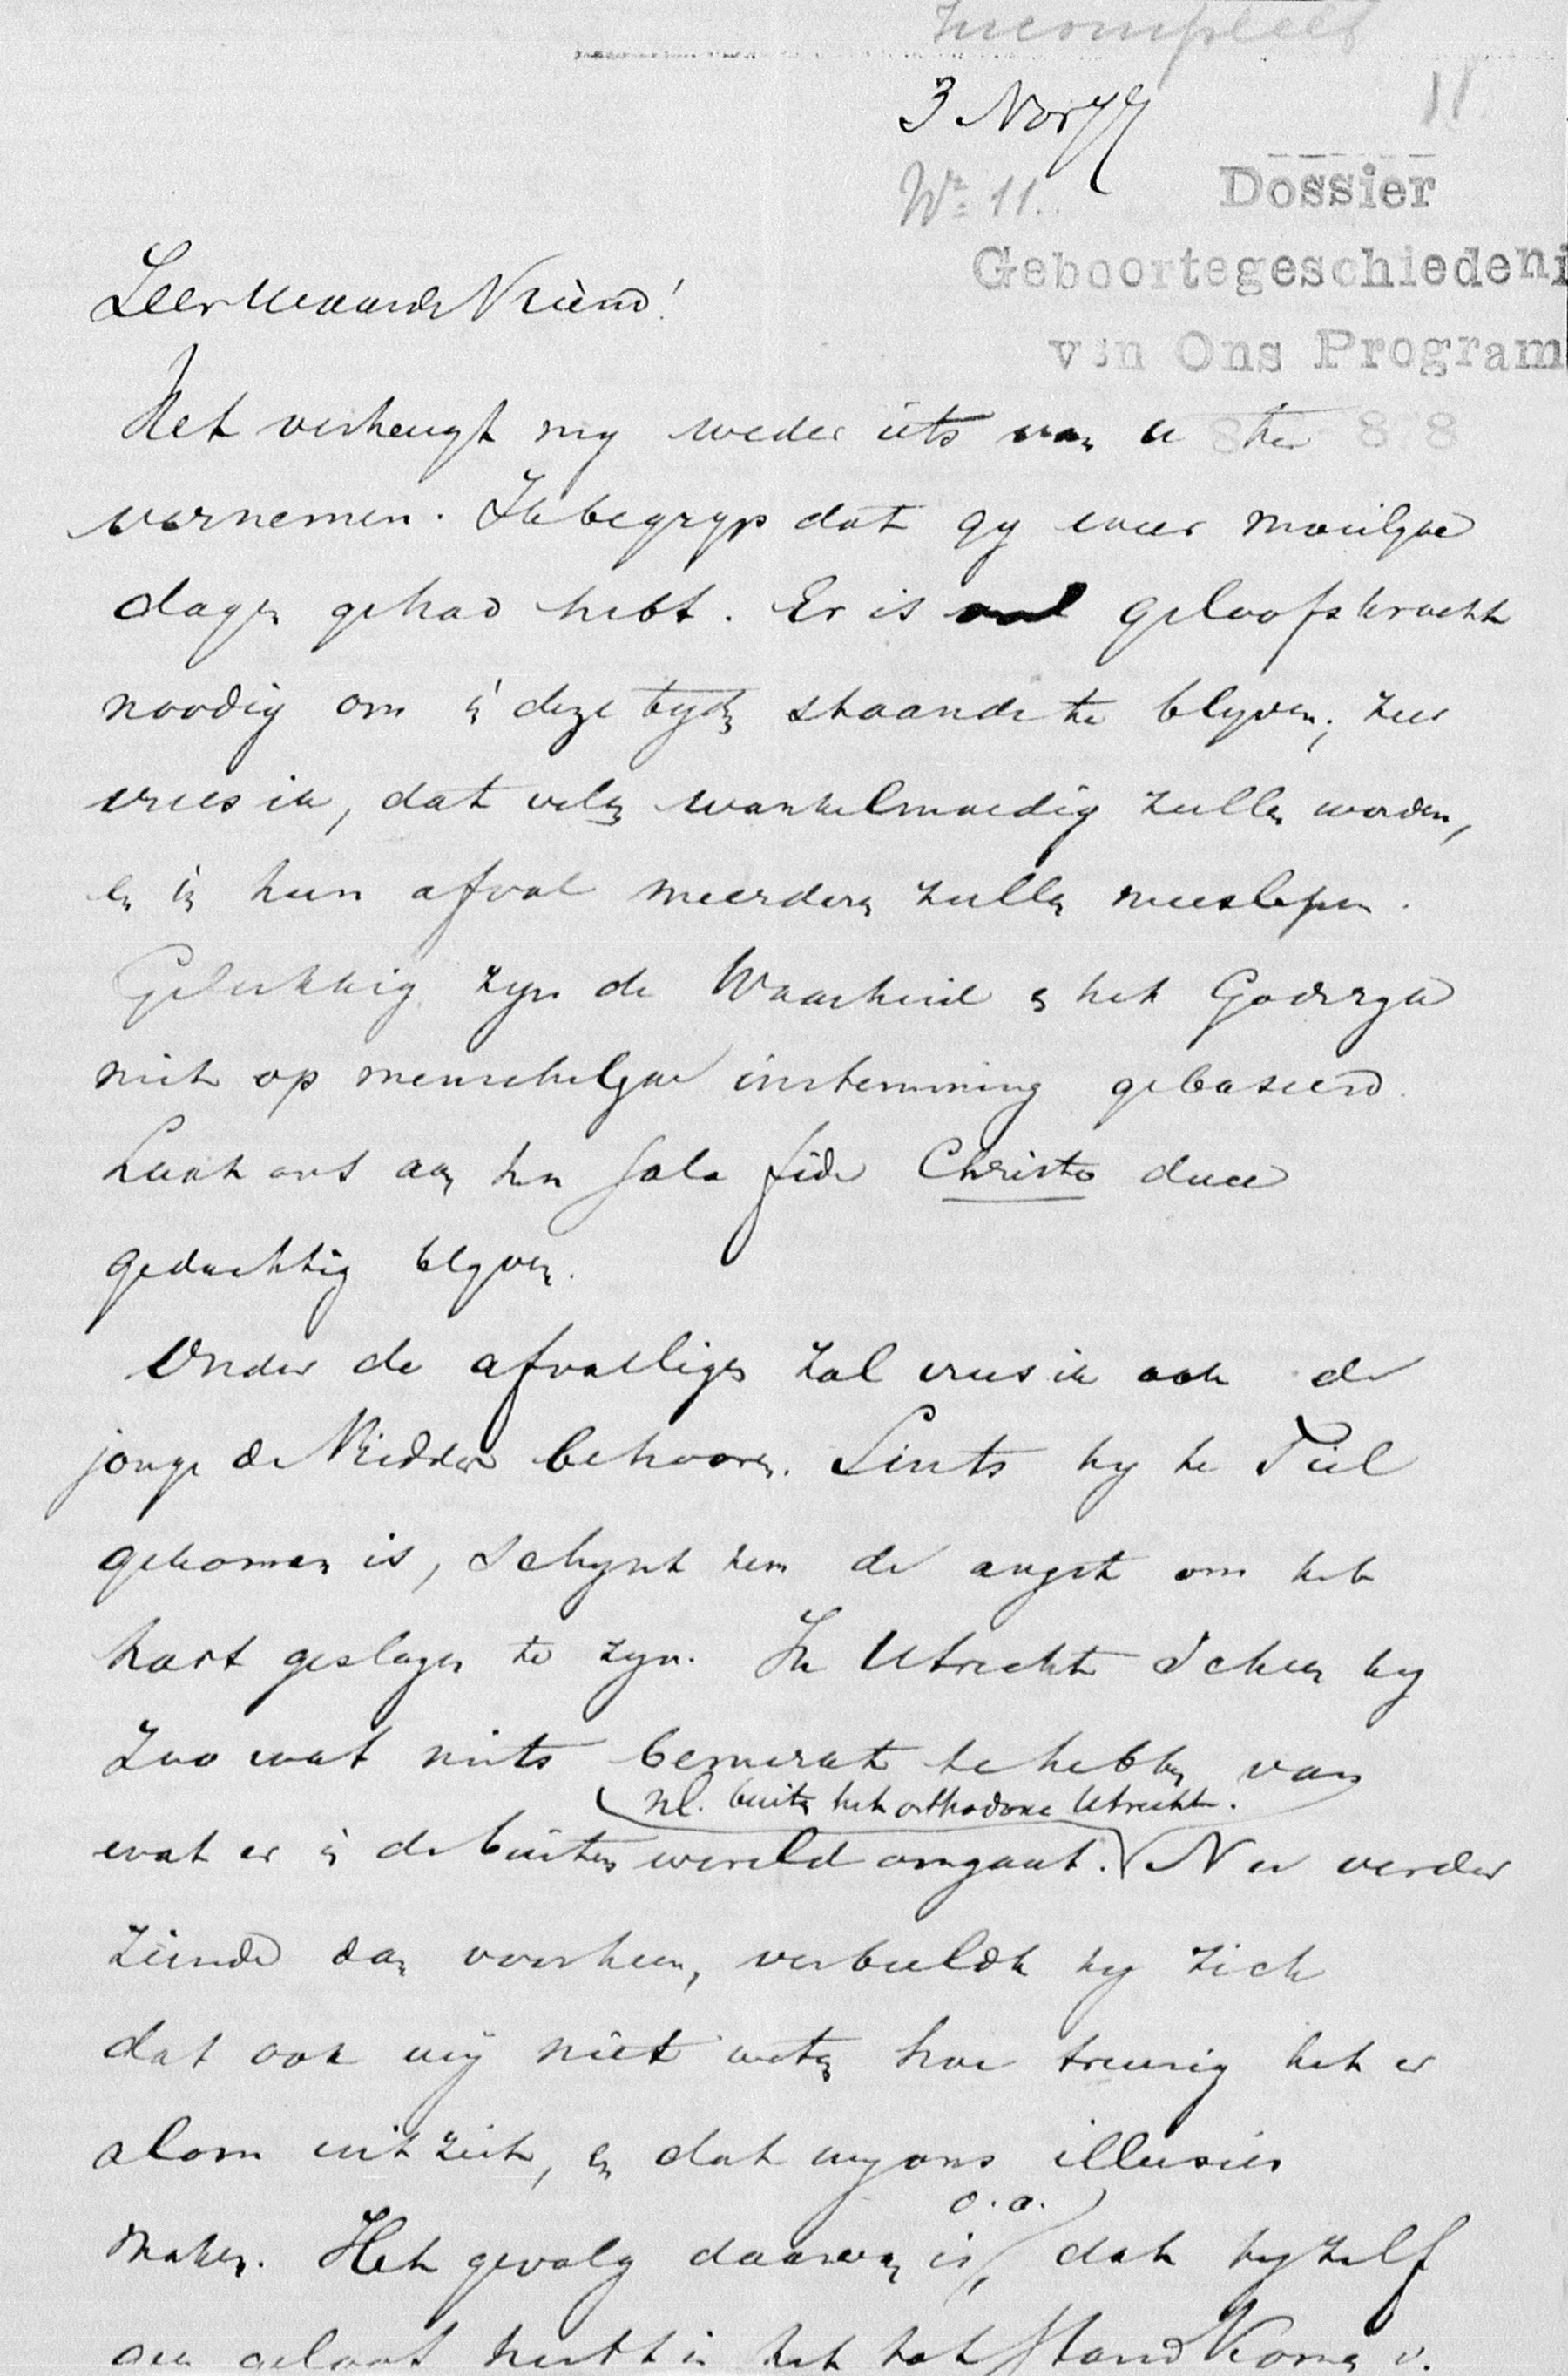 Incompleet
3 Nov 77
11
No 11.
Dossier
Geboortegeschiedeni
van Ons Program
Zeer Waarde Vriend!
Het verheugt my weder iets van u te
vernemen. Ik begryp dat gy weer moeilyke
dagen gehad hebt. Er is veel geloofskracht
noodig om in deze tyden staande te blyven; zeer
vrees ik, dat velen wankelmoedig zullen worden,
en in hun afval meerderen zullen meeslepen.
Gelukkig zyn de Waarheid en het Godsryk
niet op menschelyke instemming gebaseerd.
Laat ons aan het sola fide Christo duce
gedachtig blyven.
Onder de afvalligen zal vrees ik ook de
jonge de Ridder behooren. Sints hy te Tiel
gekomen is, schynt hem de angst om het
hart geslagen te zyn. In Utrecht scheen hy
zoo wat niets bemerkt te hebben van
nl. buiten het orthodoxe Utrecht.
wat er in de buiten wereld omgaat. Nu verder
ziende dan voorheen, verbeeldt hy zich
dat ook wy niet weten hoe treurig het er
alom uitziet, en dat wy ons illusies
o.a.
maken. Het gevolg daarvan is, dat hy zelf
geloof heeft in het tot stand komen v.